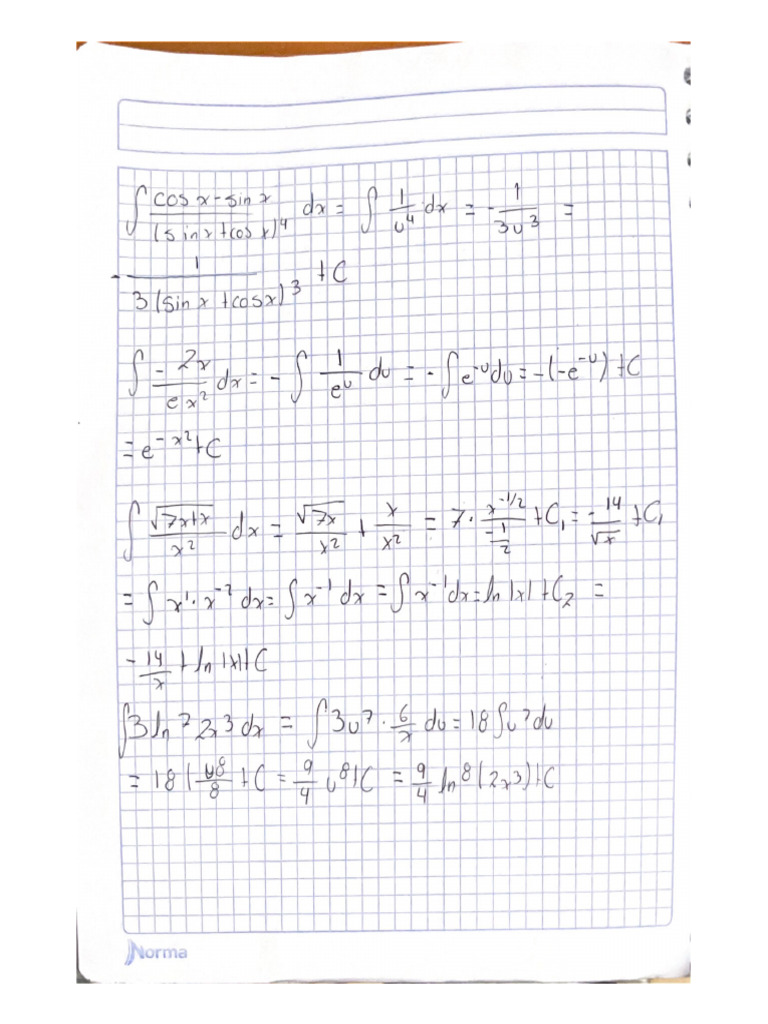 ∫ (cos x - sin x)/(sin x + cos x)^4 dx = ∫ 1/u^4 dx = - 1/(3u^3) =
- 1/(3(sin x + cos x)^3) + C
∫ - 2x/(e x^2) dx = - ∫ 1/e^u du = - ∫ e^-u du = -(-e^-u) + C
= e^-x^2 + C
∫ (√7x+x)/x^2 dx = √7x/x^2 + x/x^2 = 7 · x^-1/2/(-1/2) + C₁ = - 14/√x + C₁
= ∫ x^1 · x^-2 dx = ∫ x^-1 dx = ∫ x^-1 dx = ln |x| + C₂ =
- 14/x + ln |x| + C
∫ 3 ln^7 2x^3 dx = ∫ 3u^7 · 6/x du = 18 ∫ u^7 du
= 18 ( u^8/8 + C = 9/4 u^8 + C = 9/4 ln^8 (2x3) + C
Norma